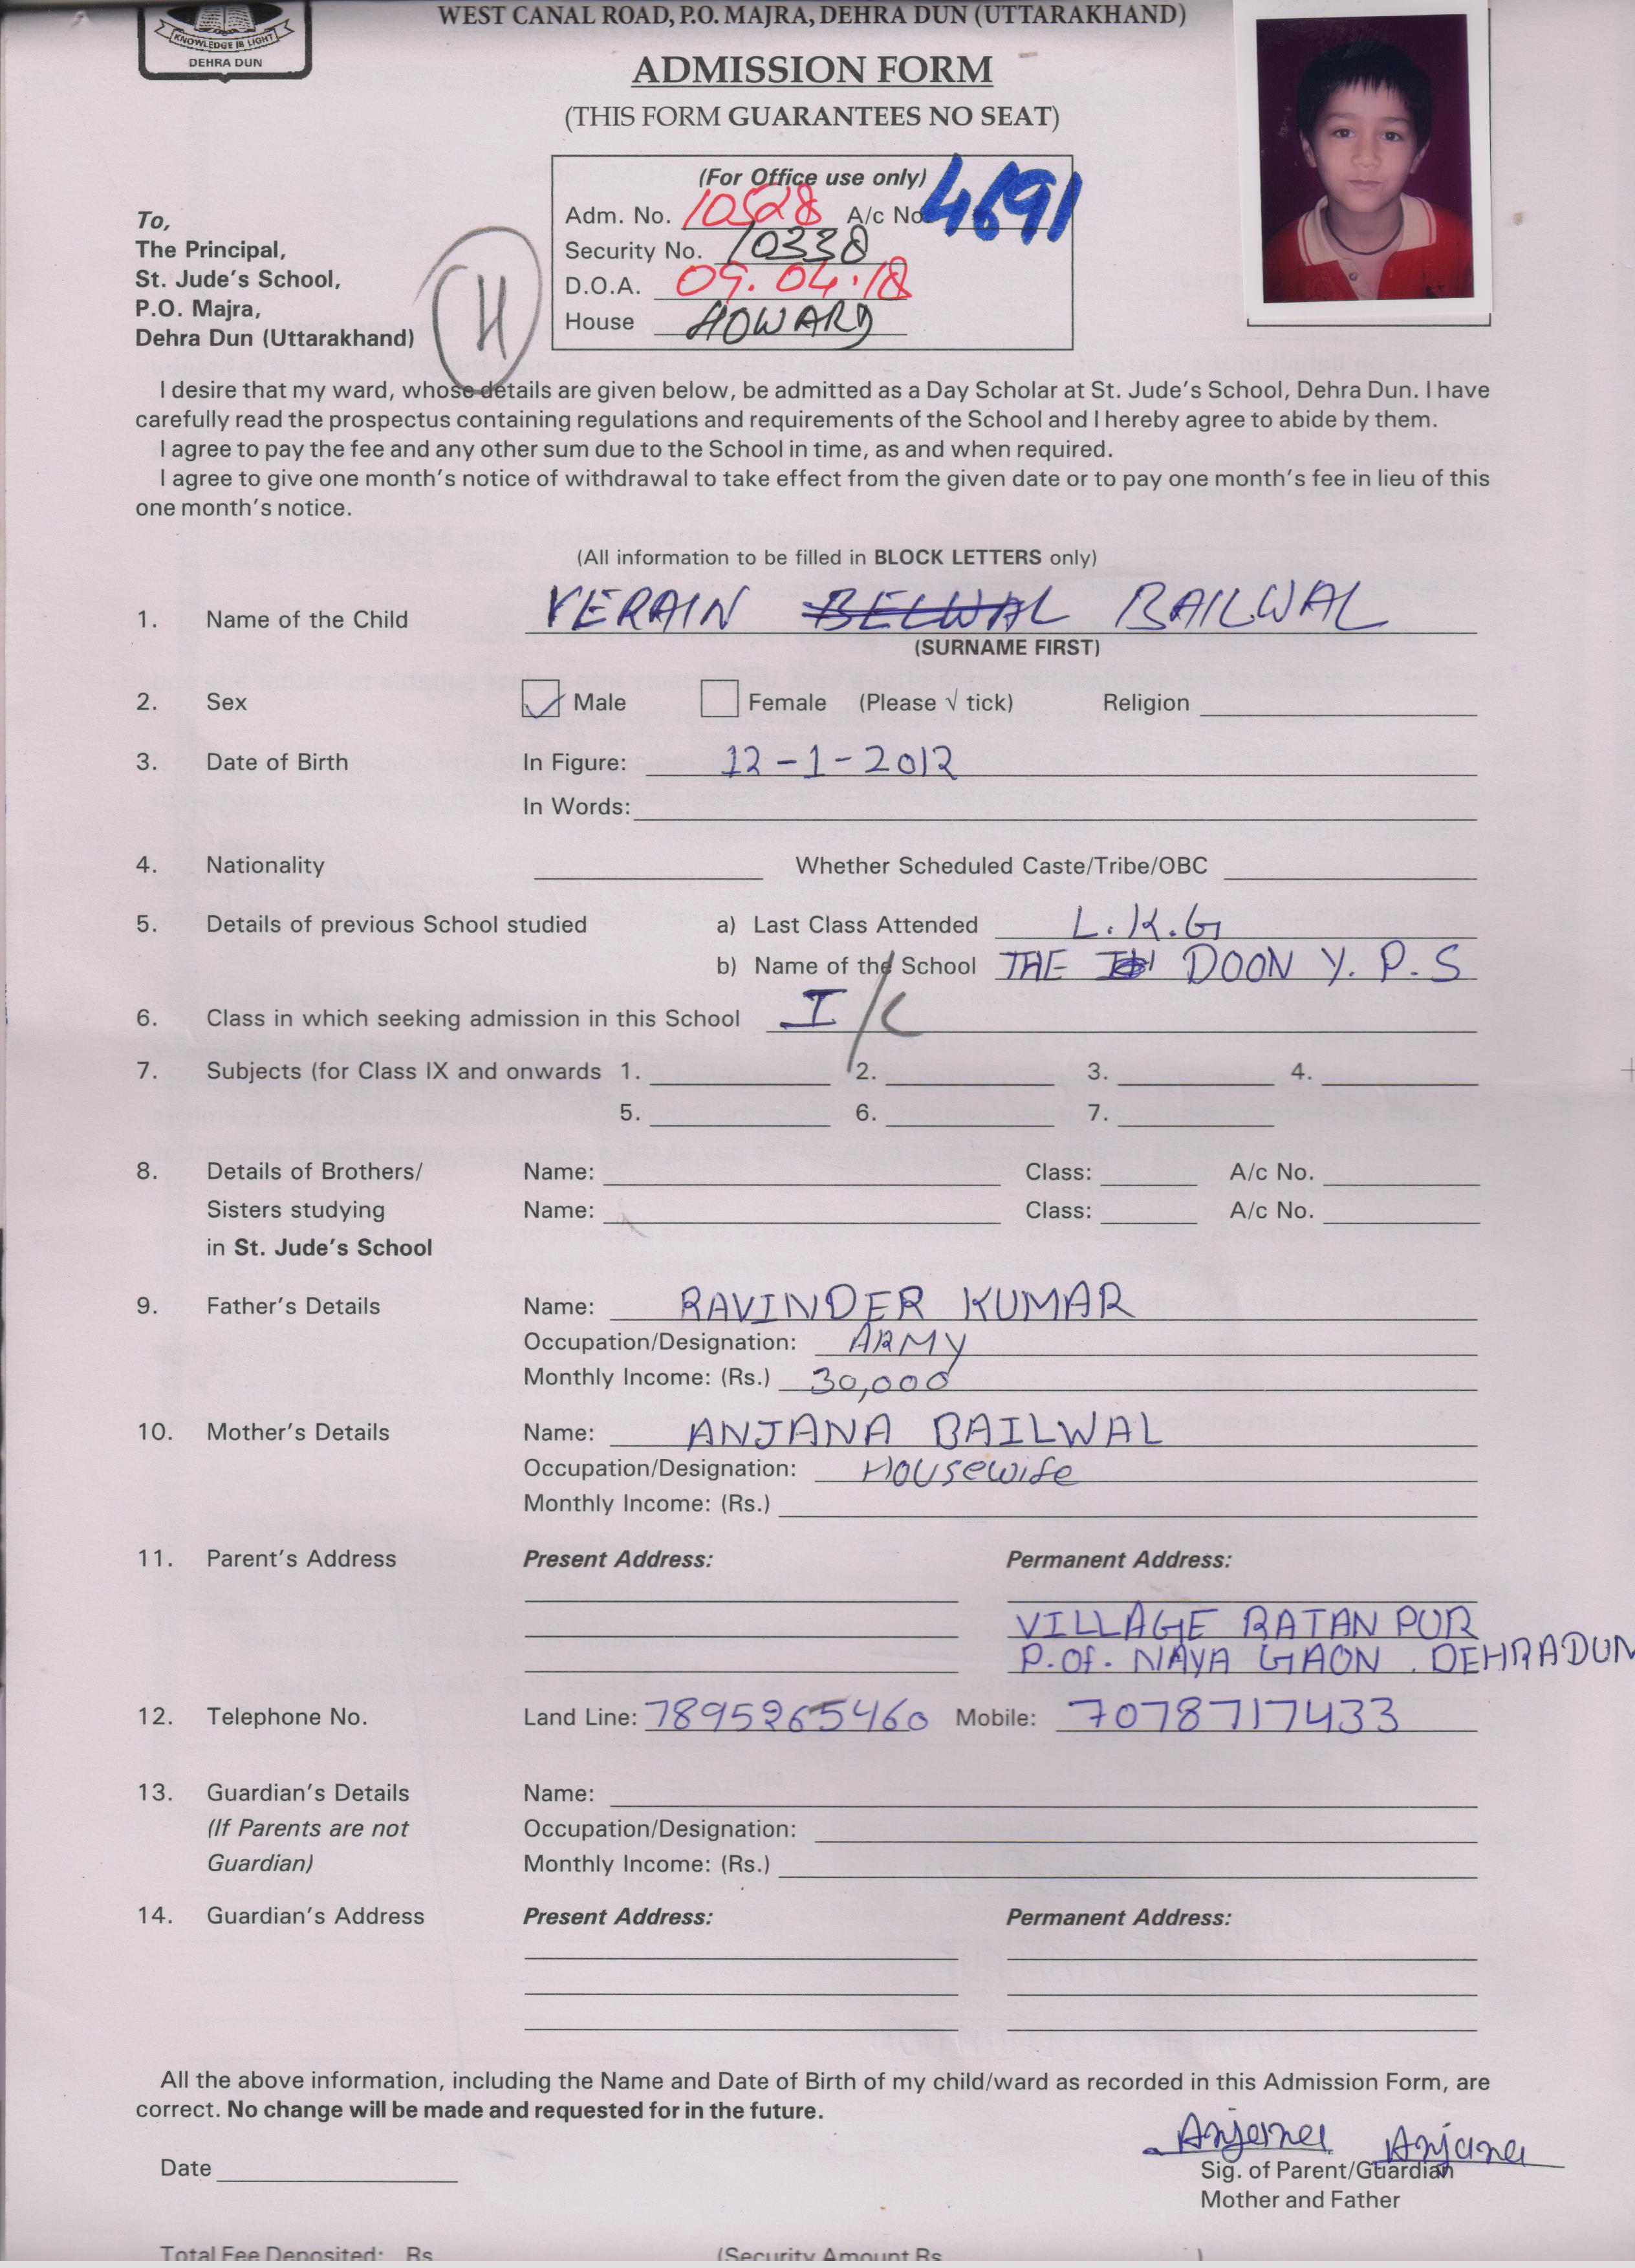 KNOWLEDGE IS LIGHT
DEHRA DUN
WEST CANAL ROAD, P.O. MAJRA, DEHRA DUN (UTTARAKHAND)
ADMISSION FORM
(THIS FORM GUARANTEES NO SEAT)
(For Office use only)
Adm. No. 10528 A/c No. 4691
Security No. 10338
D.O.A. 09.04.18
House HOWARD
To,
The Principal,
St. Jude's School,
P.O. Majra,
Dehra Dun (Uttarakhand)
H
I desire that my ward, whose details are given below, be admitted as a Day Scholar at St. Jude's School, Dehra Dun. I have
carefully read the prospectus containing regulations and requirements of the School and I hereby agree to abide by them.
I agree to pay the fee and any other sum due to the School in time, as and when required.
I agree to give one month's notice of withdrawal to take effect from the given date or to pay one month's fee in lieu of this
one month's notice.
(All information to be filled in BLOCK LETTERS only)
1. Name of the Child VERAIN BELWAL BAILWAL
(SURNAME FIRST)
2. Sex Male Female (Please √ tick) Religion
3. Date of Birth In Figure: 12-1-2012
In Words:
4. Nationality Whether Scheduled Caste/Tribe/OBC
5. Details of previous School studied a) Last Class Attended L.K.G
b) Name of the School THE DOON Y. P. S
6. Class in which seeking admission in this School I/C
7. Subjects (for Class IX and onwards 1. 2. 3. 4.
5. 6. 7.
8. Details of Brothers/ Name: Class: A/c No.
Sisters studying Name: Class: A/c No.
in St. Jude's School
9. Father's Details Name: RAVINDER KUMAR
Occupation/Designation: ARMY
Monthly Income: (Rs.) 30,000
10. Mother's Details Name: ANJANA BAILWAL
Occupation/Designation: Housewife
Monthly Income: (Rs.)
11. Parent's Address Present Address: Permanent Address:
VILLAGE RATAN PUR
P.Of. NAYA GAON. DEHRADUN
12. Telephone No. Land Line: 7895265460 Mobile: 7078717433
13. Guardian's Details Name:
(If Parents are not Occupation/Designation:
Guardian) Monthly Income: (Rs.)
14. Guardian's Address Present Address: Permanent Address:
All the above information, including the Name and Date of Birth of my child/ward as recorded in this Admission Form, are
correct. No change will be made and requested for in the future.
Anjana Anjana
Date Sig. of Parent/Guardian
Mother and Father
Total Fee Deposited: Rs. (Security Amount Rs. )